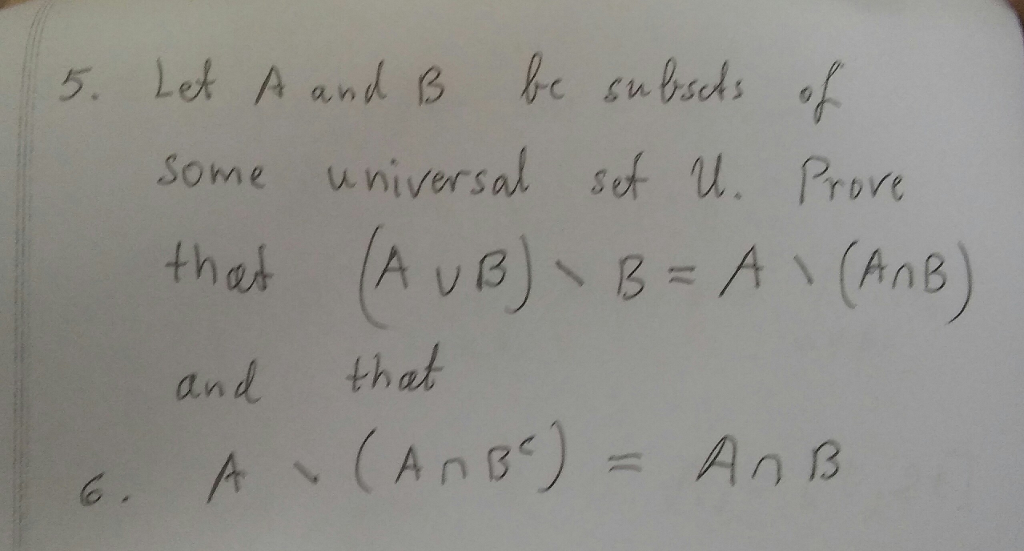 5. Let A and B be subsets of
some universal set U. Prove
that (A ∪ B) \ B = A \ (A∩B)
and that
6. A \ (A ∩ Bᶜ) = A ∩ B